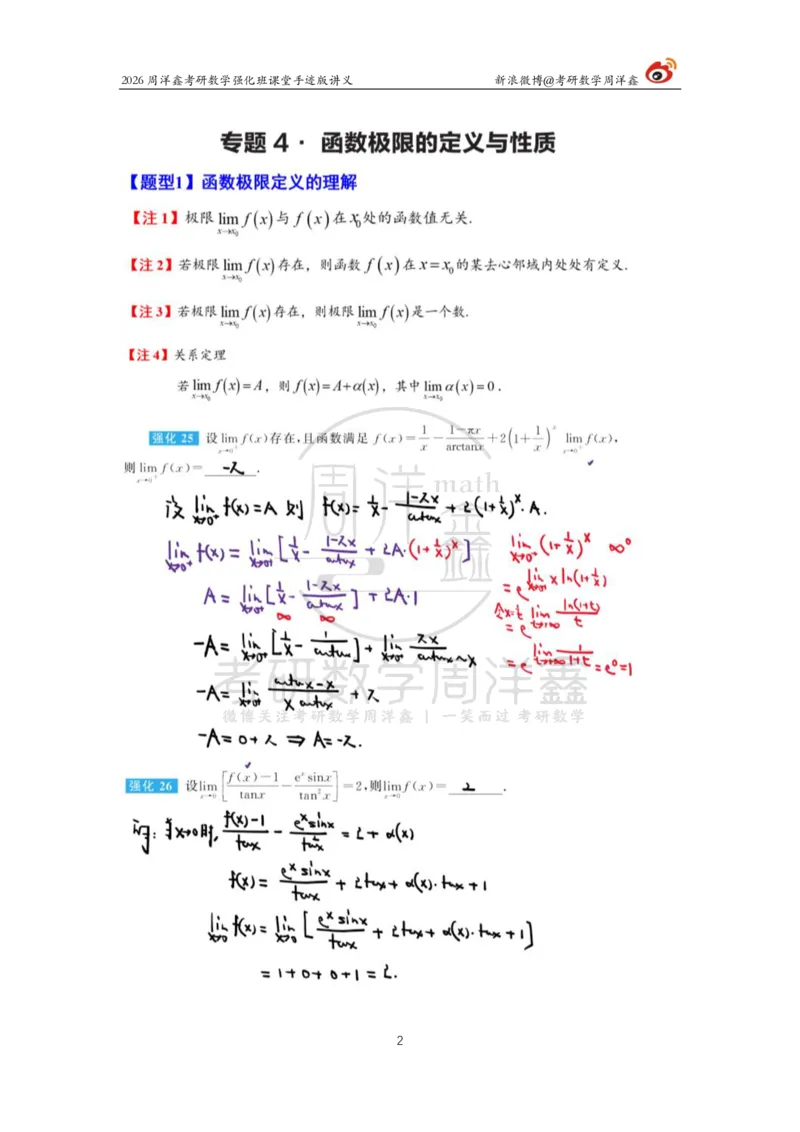 2026 周洋鑫考研数学强化班课堂手迹版讲义 新浪微博@考研数学周洋鑫
专题 4 · 函数极限的定义与性质
【题型1】函数极限定义的理解
【注 1】极限 lim_{x→x₀} f(x) 与 f(x) 在 x₀ 处的函数值无关.
【注 2】若极限 lim_{x→x₀} f(x) 存在，则函数 f(x) 在 x=x₀ 的某去心邻域内处处有定义.
【注 3】若极限 lim_{x→x₀} f(x) 存在，则极限 lim_{x→x₀} f(x) 是一个数.
【注 4】关系定理
若 lim_{x→x₀} f(x)=A，则 f(x)=A+α(x)，其中 lim_{x→x₀} α(x)=0.
强化 25 设 lim_{x→0⁺} f(x)存在,且函数满足 f(x)=1/x − (1−πx)/arctanx + 2(1+1/x)^x lim_{x→0⁺} f(x),
则 lim_{x→0⁺} f(x)= -π .
设 lim_{x→0⁺} f(x)=A 则 f(x)= 1/x − (1−πx)/arctanx + 2(1+1/x)^x · A.
lim_{x→0⁺} f(x) = lim_{x→0⁺} [1/x − (1−πx)/arctanx + 2A·(1+1/x)^x]
A = lim_{x→0⁺} [1/x − (1−πx)/arctanx] + 2A·1
∞ ∞
−A = lim_{x→0⁺} [1/x − 1/arctanx] + lim_{x→0⁺} πx/arctanx~x
−A = lim_{x→0⁺} (arctanx−x)/(x arctanx) + π
−A = 0+π ⇒ A=−π.
lim_{x→0⁺} (1+1/x)^x ∞⁰
= e^{lim_{x→0⁺} x ln(1+1/x)}
令1/x=t = e^{lim_{t→+∞} ln(1+t)/t}
= e^{lim_{t→+∞} 1/(1+t)} = e⁰ = 1
周洋鑫 math
考研数学周洋鑫
微博关注考研数学周洋鑫 | 一笑而过 考研数学
强化 26 设 lim_{x→0} [(f(x)−1)/tanx − (eˣ sinx)/tan²x] = 2,则 lim_{x→0} f(x)= 2 .
解: 当x→0时, (f(x)−1)/tanx − (eˣ sinx)/tan²x = 2+α(x)
f(x) = (eˣ sinx)/tanx + 2tanx + α(x)·tanx + 1
lim_{x→0} f(x) = lim_{x→0} [(eˣ sinx)/tanx + 2tanx + α(x)·tanx + 1]
= 1+0+0+1 = 2.
2